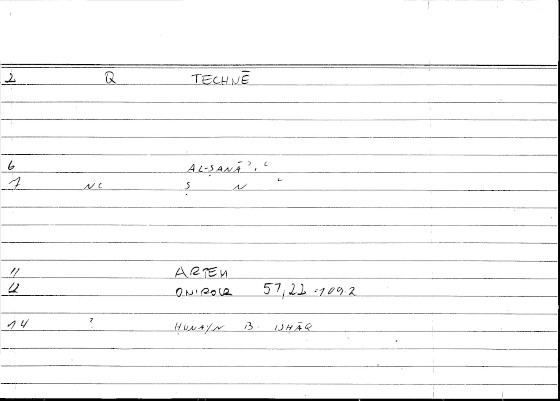 2 Q TECHNĒ
6 AL-ṢANĀʾiʿ
7 NC Ṣ N ʿ
11 ARTEM
12 ONIROCR 57,22 -1092
14 ? ḤUNAYN B. ISḤĀQ